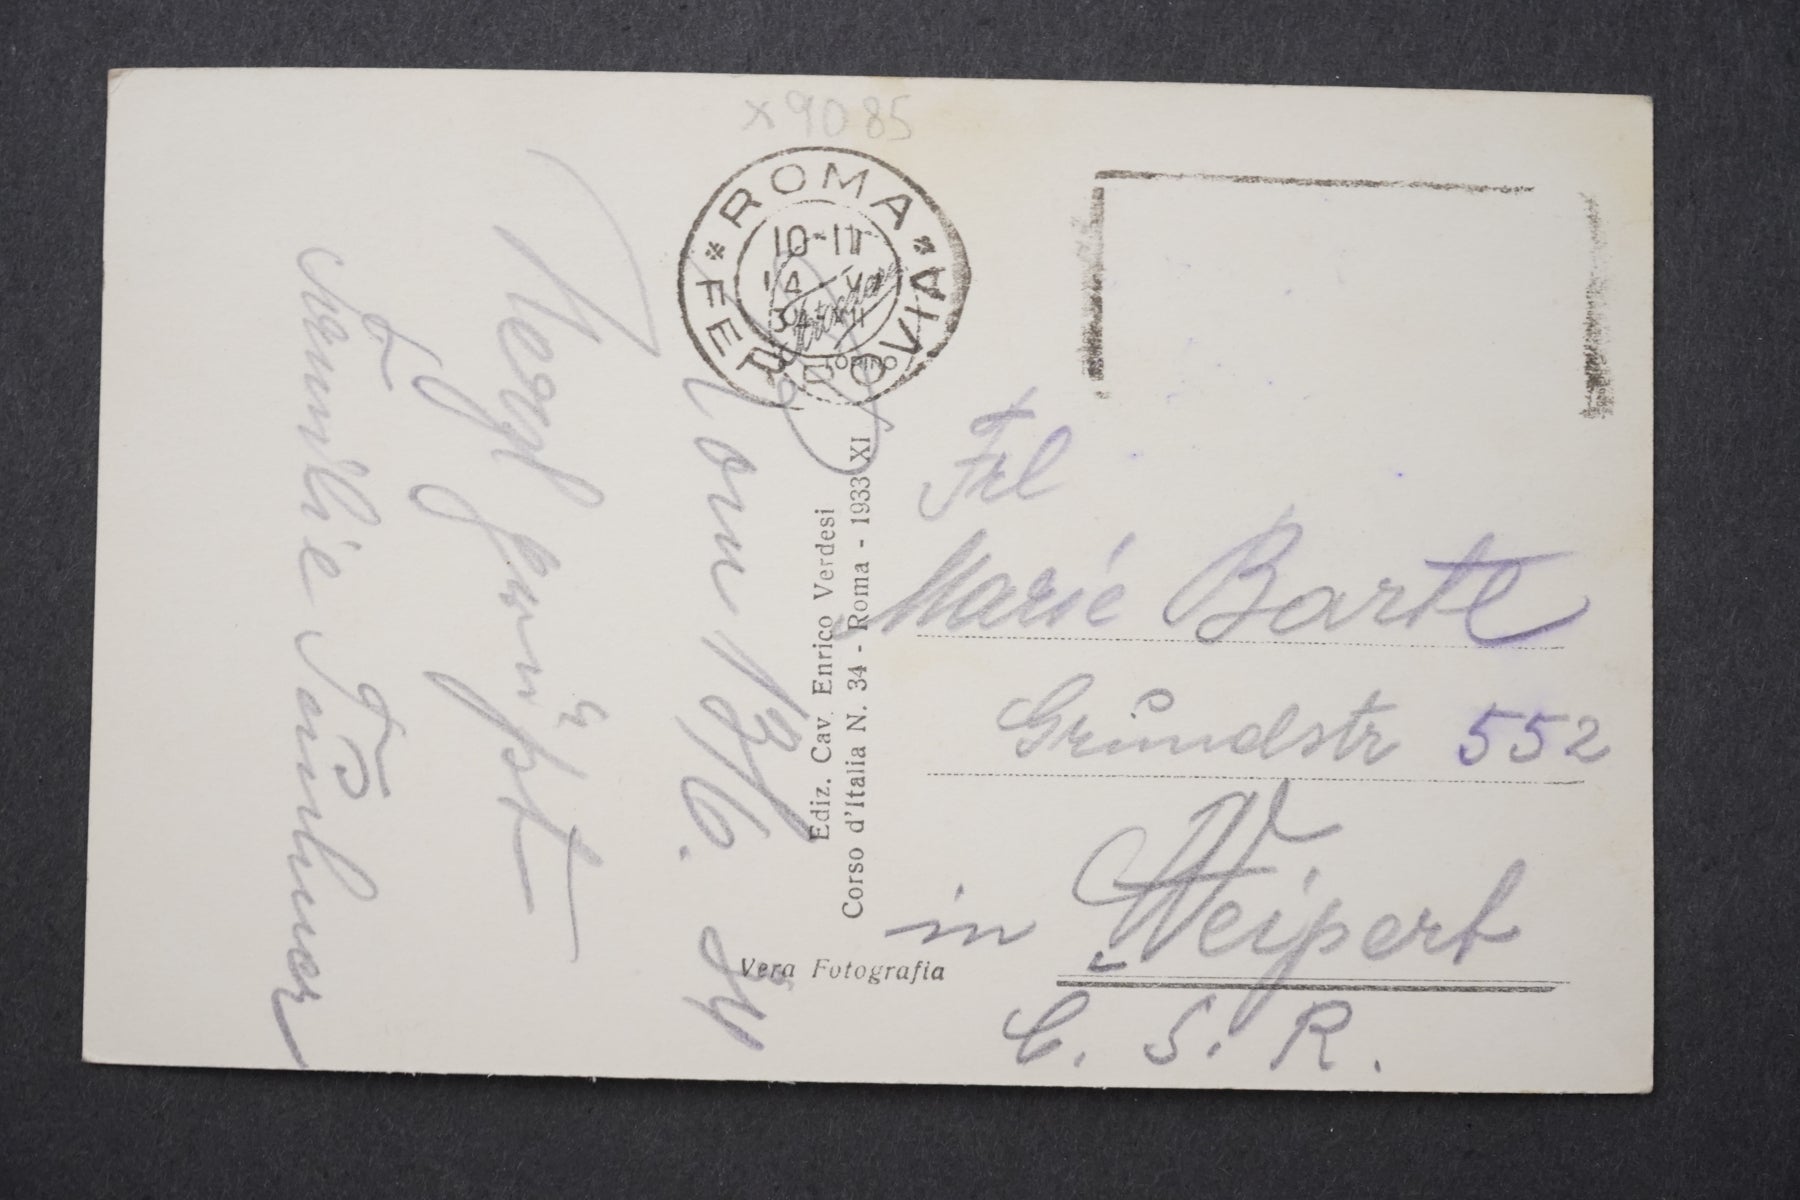 x 9085
ROMA
FERROVIA
10-11
14 VI
34 XII
TORINO
Rom 13/6. 34
Herzl. grüßt
Familie
Ediz. Cav. Enrico Verdesi
Corso d'Italia N. 34 - Roma - 1933 XI
Vera Fotografia
Frl
Marie Bartl
Grundstr 552
in Weipert
C. S. R.